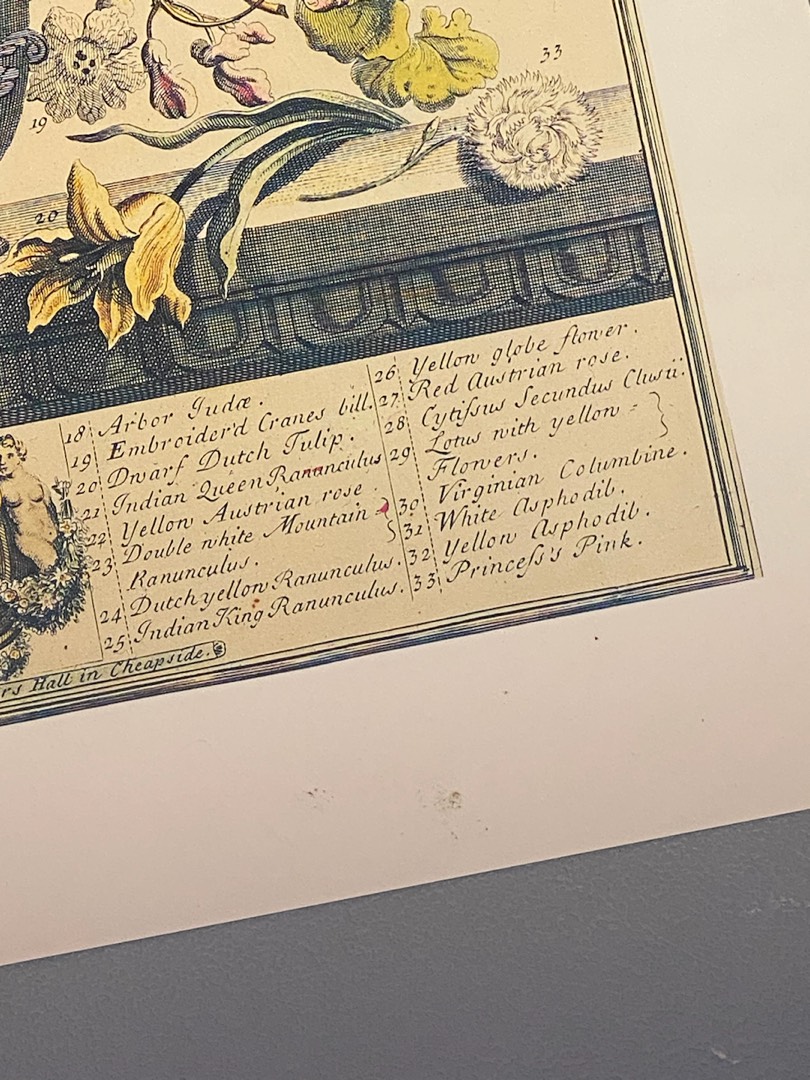 19
33
20
18 Arbor Judæ.
19 Embroider'd Cranes bill.
20 Dwarf Dutch Tulip.
21 Indian Queen Rananculus
22 Yellow Austrian rose
23 Double white Mountain }
Ranunculus.
24 Dutch yellow Ranunculus.
25 Indian King Ranunculus.
26 Yellow globe flower.
27 Red Austrian rose.
28 Cytiſsus Secundus Clusii.
29 Lotus with yellow = }
Flowers.
30 Virginian Columbine.
31 White Asphodil.
32 Yellow Asphodil.
33 Princeſs's Pink.
rs Hall in Cheapside.